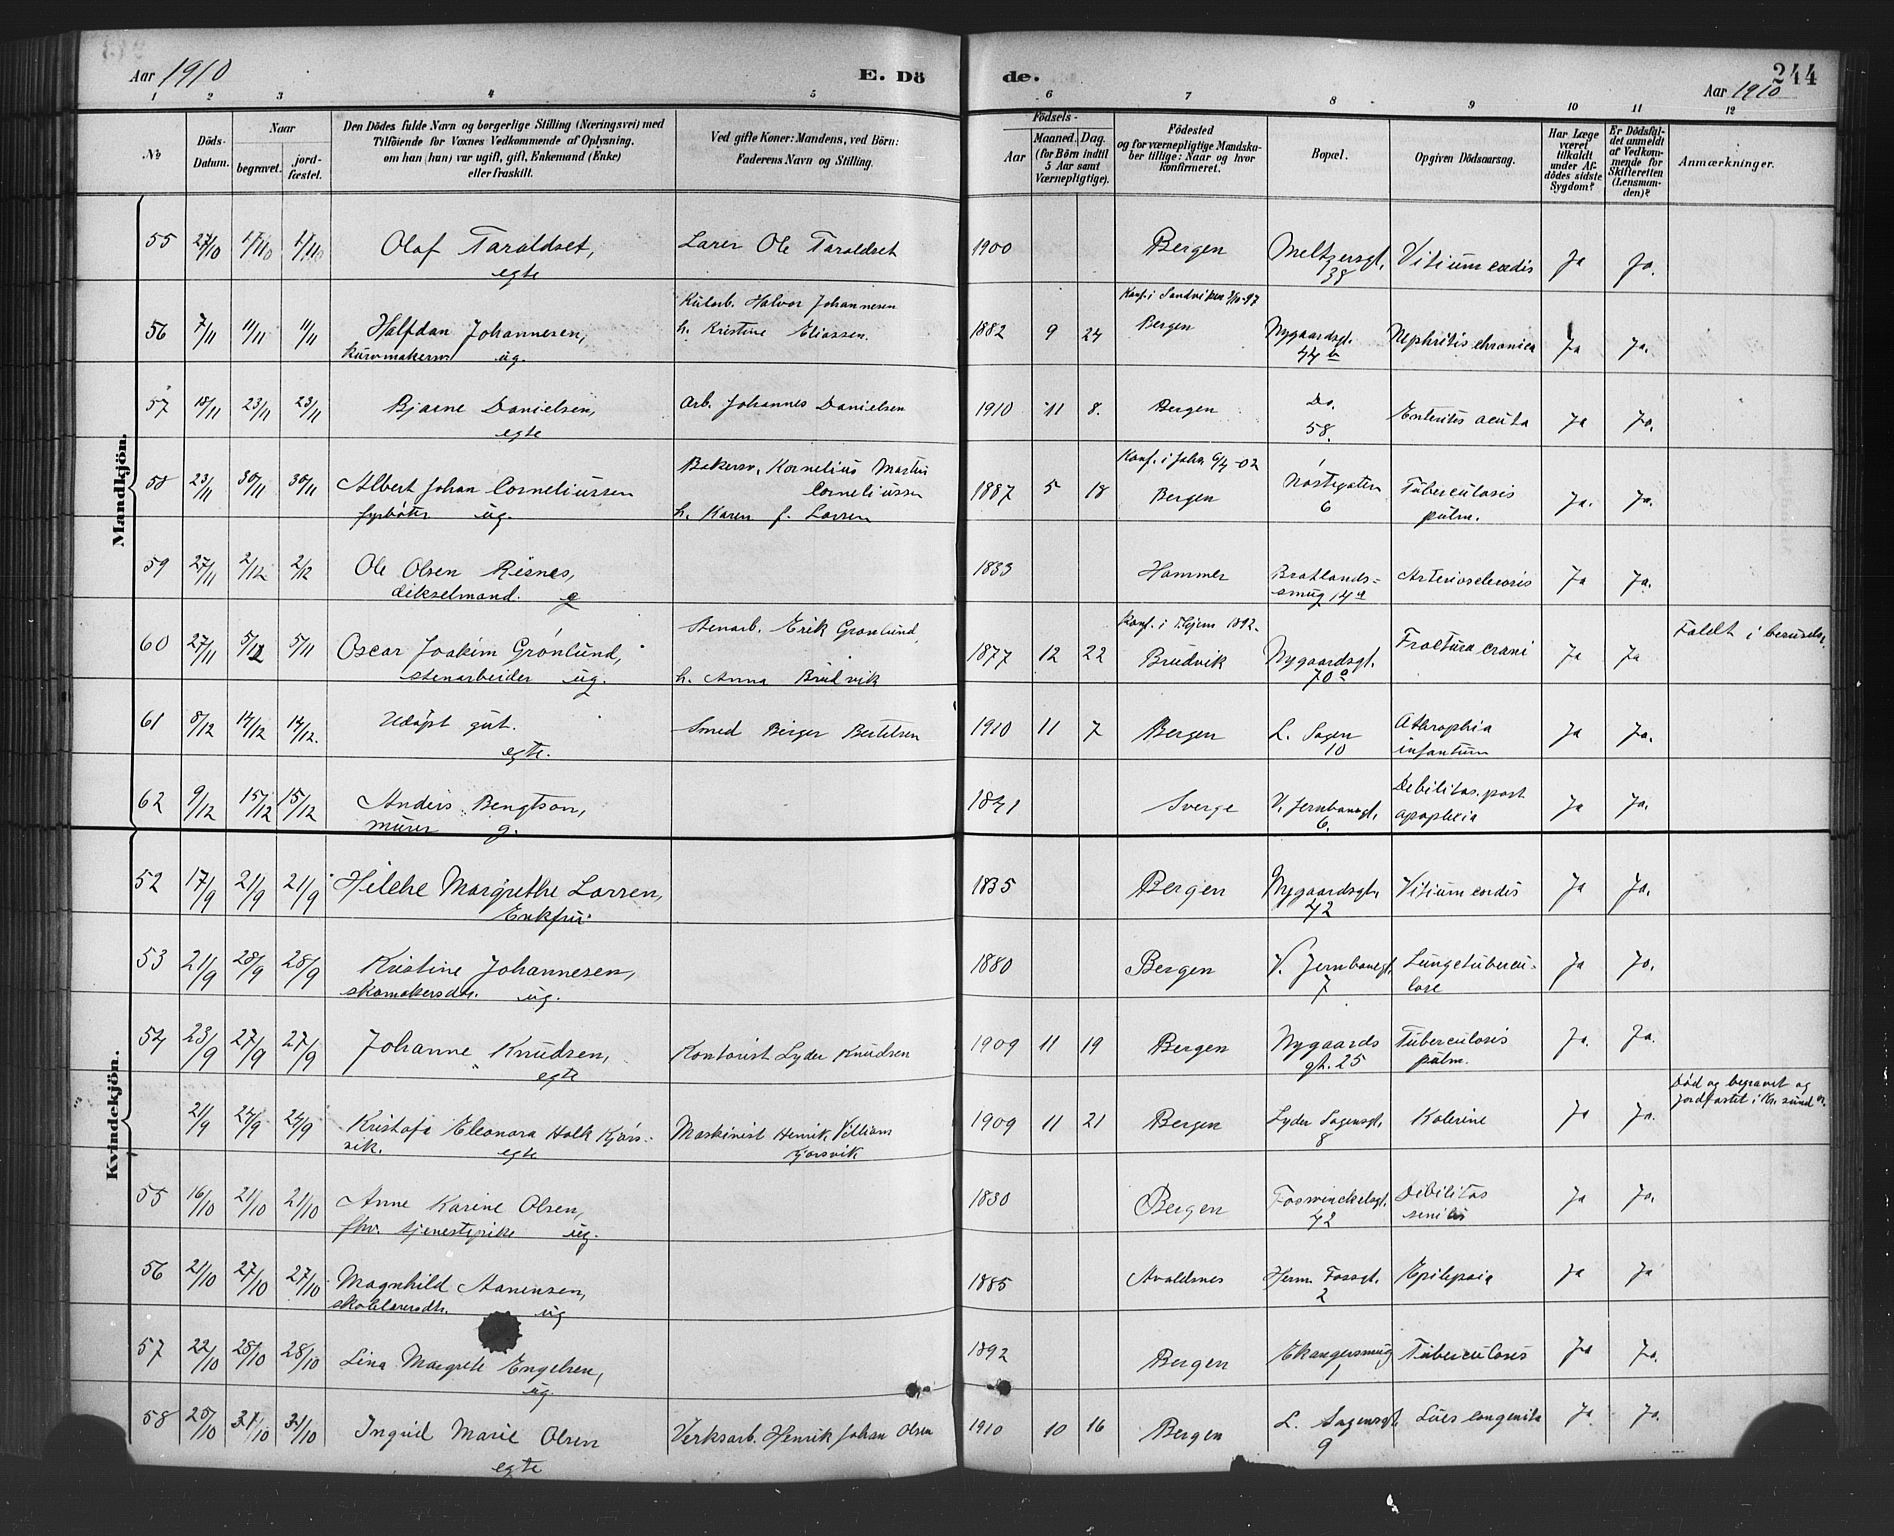 Aar 1910
E. Dö
de.
244
Aar 1910
1 2 3 4 5 6 7 8 9 10 11 12
No
Döds-Datum.
Naar
begravet.
jord-fæstet.
Den Dödes fulde Navn og borgerlige Stilling (Næringsvei) med
Tilföiende for Voxnes Vedkommende af Oplysning,
om han (hun) var ugift, gift, Enkemand (Enke)
eller fraskilt.
Ved gifte Koner: Mandens, ved Börn:
Faderens Navn og Stilling.
Födsels-
Aar
Maaned. Dag.
(for Börn indtil
5 Aar samt
Værnepligtige).
Födested
og for værnepligtige Mandska-
ber tillige: Naar og hvor
konfirmeret.
Bopæl.
Opgiven Dödsaarsag.
Har Læge
været
tilkaldt
under Af-
dödes sidste
Sygdom?
Er Dödsfal-
det anmeldt
af Vedkom-
mende for
Skifteretten
(Lensman-
den)?
Anmærkninger.
Mandkjön.
55 27/10 1/11 1/11 Olaf Taraldset, Lærer Ole Taraldset 1900 Bergen Meltzersgt. Vitium cordis Ja Ja.
egte 38
Kularb. Halvor Johannesen Konf. i Sandviken 3/10-97
56 7/11 11/11 11/11 Halfdan Johannesen, h. Kristine Eliassen. 1882 9 24 Bergen Nygaardsgt. Nephritis chronica Ja Ja.
kurvmakersv. ug. 44 b
57 18/11 23/11 23/11 Bjarne Danielsen, Arb. Johannes Danielsen 1910 11 8. Bergen Do. Enteritis acuta Ja Ja.
egte 58.
Bakersv. Kornelius Martin Konf. i Joha 6/4-02
58 23/11 30/11 30/11 Albert Johan Corneliussen Corneliussen 1887 5 18 Bergen Nøstegaten Tuberculosis Ja. Ja.
fyrbøter ug. h. Karen f. Larsen 6 pulm.
59 27/11 2/12 2/12 Ole Olsen Risnes, 1833 Hammer Bratlands- Arteriosclerosis Ja Ja.
dikselmand. g smug 14 a
Stenarb. Erik Grønlund, Faldt i
60 27/11 5/12 5/11 Oscar Joakim Grønlund, 1877 12 22 Brudvik Nygaardsgt. Fractura crani Ja Ja
stenarbeider ug. h. Anna Brudvik 70 a
61 8/12 14/12 14/12. Udøpt gut. Smed Birger Bertelsen 1910 11 7 Bergen L. Sagen Athrophia Ja Ja.
egte. 10 infantum
62 9/12 15/12 15/12 Anders Bengtson, 1841 Sverge V. Jernbanegt. Debilitas. post Ja Ja.
murer g. 6. apoplexia
Kvindekjön.
52 17/9 21/9 21/9 Margrethe Larsen, 1835 Bergen Nygaardsgt. Vitium cordis Ja Ja.
Enkefru 42
53 21/9 28/9 28/9 Kristine Johannesen, 1880 Bergen V. Jernbanegt. Lungetubercu- Ja Ja.
skomakersdtr. ug. 7 lose
54 23/9 27/9 27/9 Johanne Knudsen, Kontorist Lyder Knudsen 1909 11 19 Bergen Nygaards Tuberculosis Ja. Ja.
egte gt. 25 pulm.
Død og begravet og
21/9 24/9 24/9 Kristofa Eleonora Holk Kjørs- Maskinist Henrik Villiam 1909 11 21 Bergen Lyder Sagensgt. Kolerine Ja Ja. jordfæstet i Kr.sund N.
vik. egte Kjørsvik 8
55 16/10 21/10 21/10 Anne Karine Olsen, 1830 Bergen Foswinckelsgt. Debilitas Ja Ja.
fhv. tjenestepike ug. 42 senilis
56 21/10 27/10 27/10 Magnhild Aanensen, 1885 Avaldsnes Herm. Fossgt. Epilepsia Ja Ja
skolelærersdtr. ug 2
57 22/10 28/10 28/10 Lina Margrete Engelsen, 1892 Bergen Ekangersmug Tuberculosis Ja Ja.
ug 1
58 25/10 31/10 31/10 Ingrid Marie Olsen Verksarb. Henrik Johan Olsen 1910 10 16 Bergen L. Sagensgt. Lues congenita Ja Ja.
egte 9